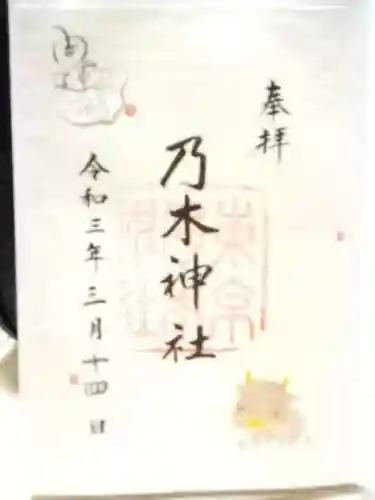 奉拝
乃木神社
令和三年三月十四日